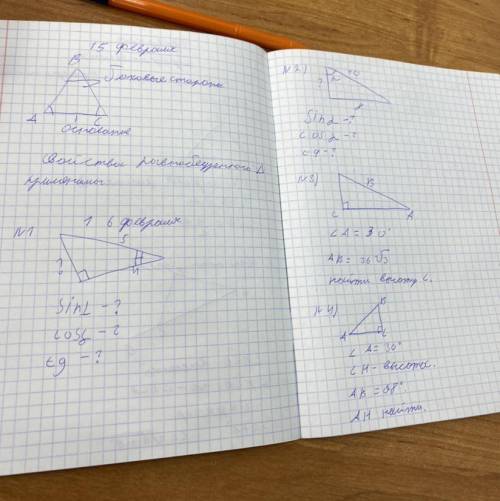 15 февраля
B
Боковые стороны
A
C
основание
Свойства равнобедренного Δ
16 февраля
N1
5
?
4
sin2 - ?
cos2 - ?
tg - ?
N2)
10
?
sin2 - ?
cos2 - ?
tg - ?
N3)
B
C
A
∠A = 30°
AB = 36√3
найти высоту C.
N4)
B
A
C
∠A = 30°
CH - высота.
AB = 98°
AH найти.